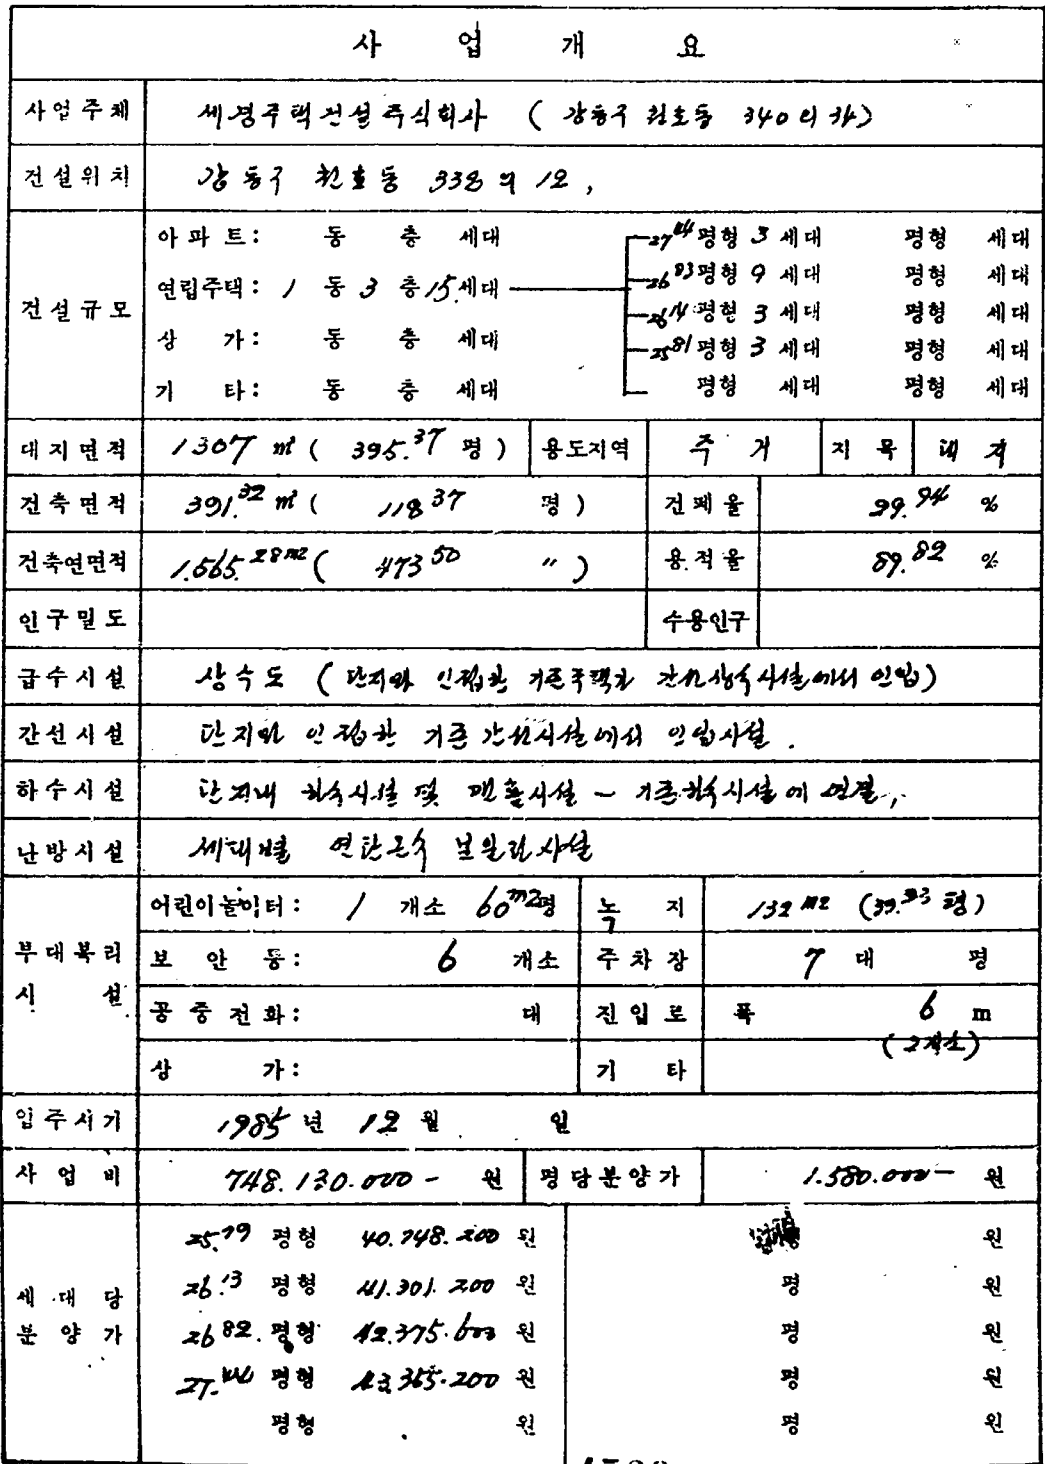 사 업 개 요
사업주체 세경주택건설주식회사 ( 강동구 천호동 340의 34)
건설위치 강동구 천호동 338의 12,
건설규모
아파트: 동 층 세대 27.44평형 3 세대 평형 세대
연립주택: 1 동 3 층 15세대 26.83평형 9 세대 평형 세대
26.14평형 3 세대 평형 세대
상 가: 동 층 세대 25.81평형 3 세대 평형 세대
기 타: 동 층 세대 평형 세대 평형 세대
대지면적 1307 ㎡ ( 395.37 평 ) 용도지역 주 거 지 목 대 지
건축면적 391.32 ㎡ ( 118 37 평 ) 건폐율 29.94 %
건축연면적 1.565.28m2 ( 473 50 〃 ) 용적율 89.82 %
인구밀도 수용인구
급수시설 상수도 ( 단지와 인접한 기존주택가 간선상수시설에서 인입)
간선시설 단지와 인접한 기존 간선시설에서 인입시설.
하수시설 단지내 하수시설 및 맨홀시설 - 기존하수시설에 연결,
난방시설 세대별 연탄온수 보일러시설
부대복리시 설
어린이놀이터: 1 개소 60m2평 녹 지 132 m2 (39.93 평)
보 안 등: 6 개소 주차장 7 대 평
공중전화: 대 진입로 폭 6 m
(2개소)
상 가: 기 타
입주시기 1985년 12월 일
사 업 비 748.130.000- 원 평당분양가 1.580.000- 원
세대당 분양가
25.79 평형 40.748.200 원 평 원
26.13 평형 41.301.200 원 평 원
26 82. 평형 42.375.600 원 평 원
27.44 평형 43.355.200 원 평 원
평형 원 평 원